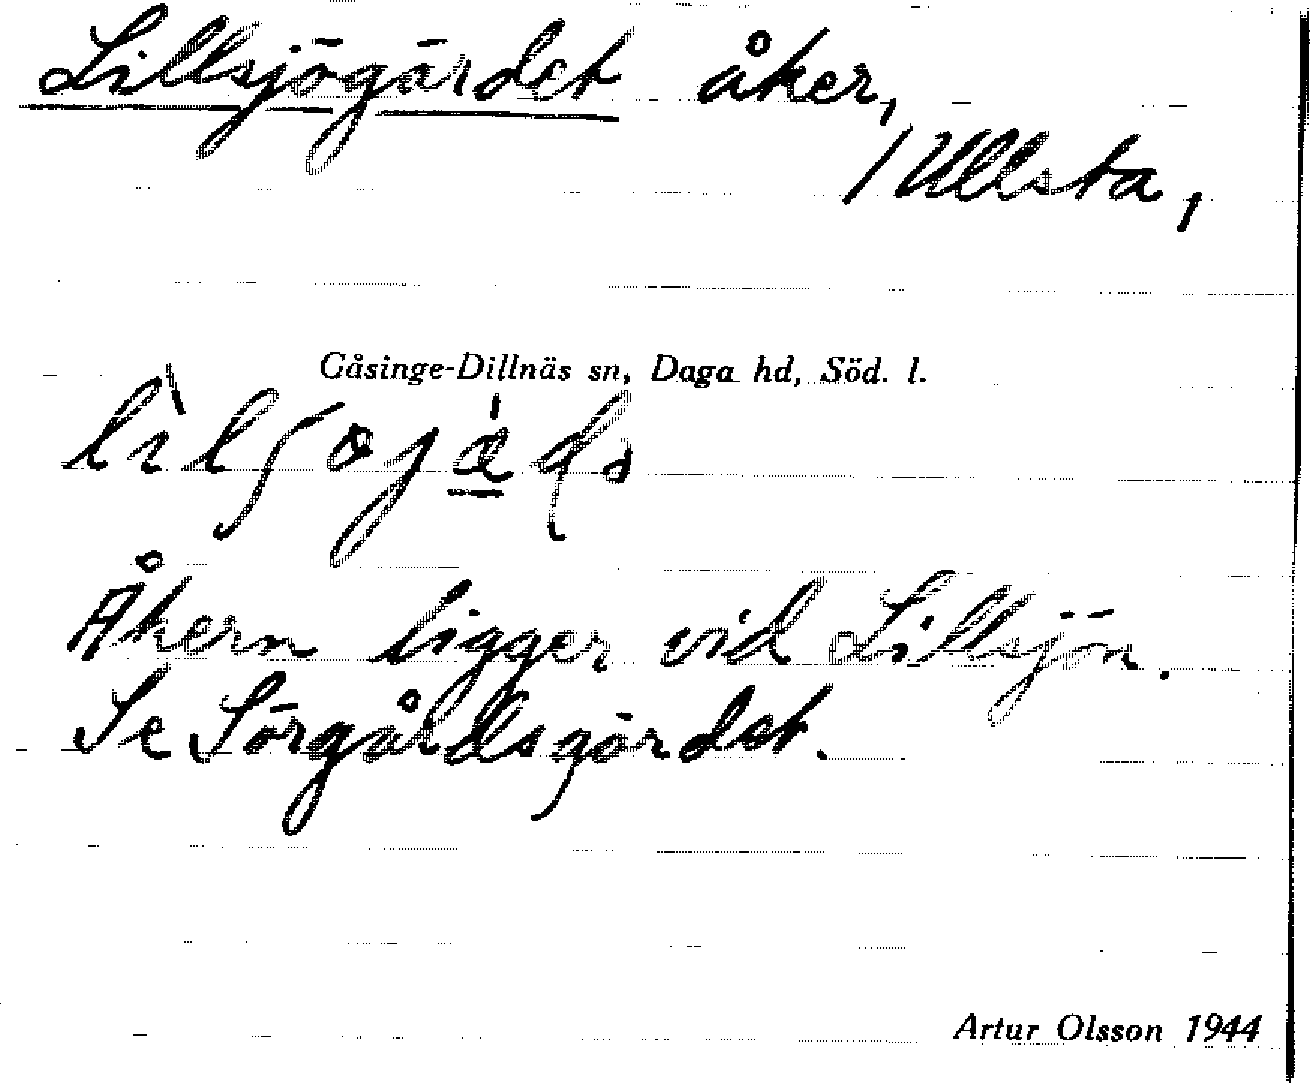 Lillsjögärdet åker,
/ Ullsta,
Gåsinge-Dillnäs sn, Daga hd, Söd. l.
Åkern ligger vid Lillsjön.
Se Sörgårdsgärdet.
Artur Olsson 1944